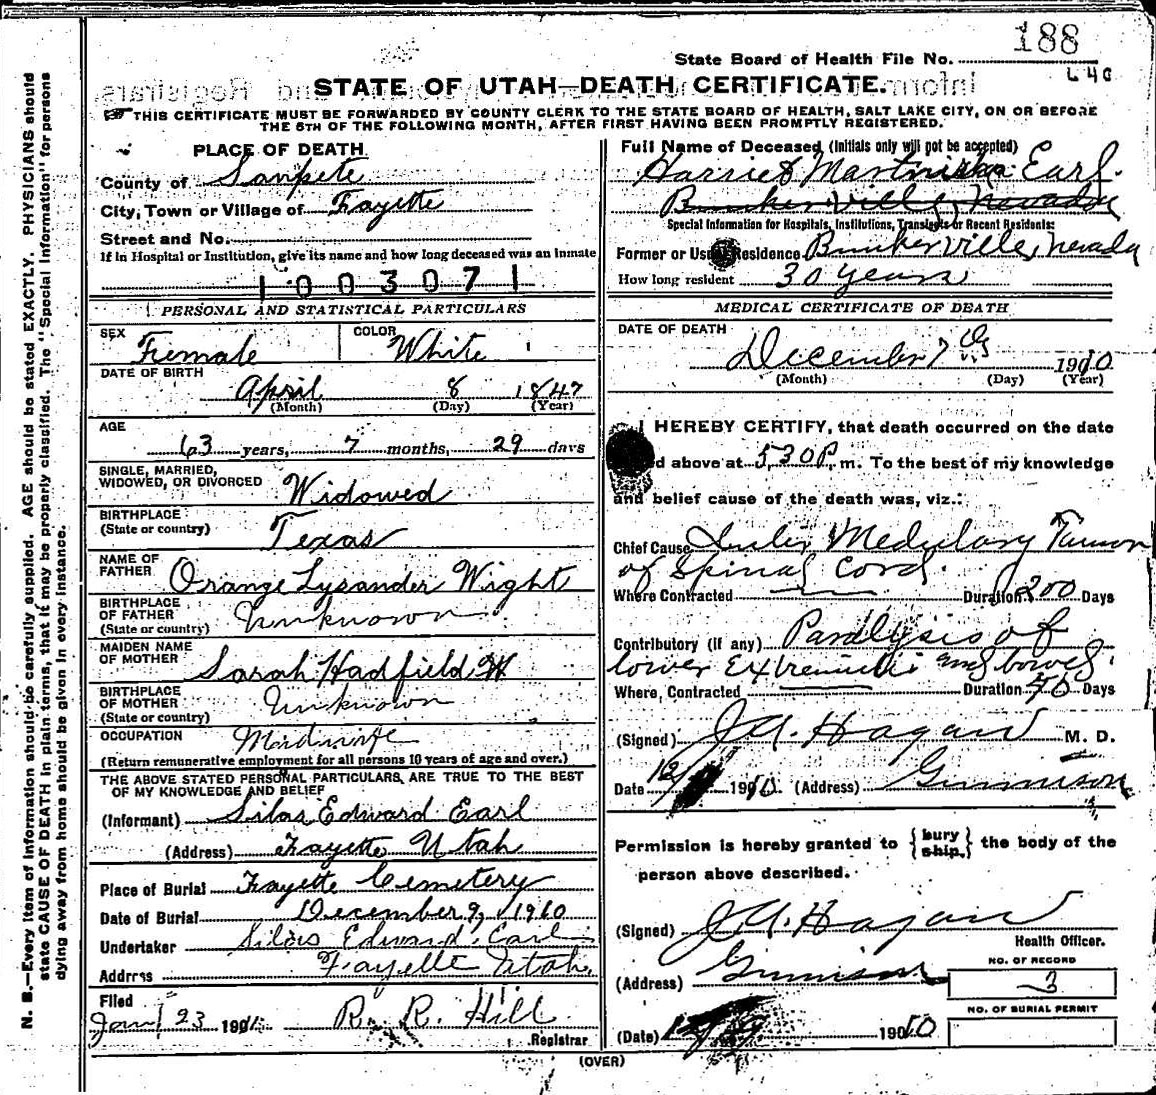 188
State Board of Health File No.
640
STATE OF UTAH—DEATH CERTIFICATE.
THIS CERTIFICATE MUST BE FORWARDED BY COUNTY CLERK TO THE STATE BOARD OF HEALTH, SALT LAKE CITY, ON OR BEFORE
THE 5TH OF THE FOLLOWING MONTH, AFTER FIRST HAVING BEEN PROMPTLY REGISTERED.
N. B.—Every item of information should be carefully supplied. AGE should be stated EXACTLY. PHYSICIANS should
state CAUSE OF DEATH in plain terms, that it may be properly classified. The "Special Information" for persons
dying away from home should be given in every instance.
PLACE OF DEATH
County of Sanpete
City, Town or Village of Fayette
Street and No.
If in Hospital or Institution, give its name and how long deceased was an inmate
1003071
PERSONAL AND STATISTICAL PARTICULARS
SEX Female COLOR White
DATE OF BIRTH
April 8 1847
(Month) (Day) (Year)
AGE
63 years, 7 months, 29 days
SINGLE, MARRIED,
WIDOWED, OR DIVORCED Widowed
BIRTHPLACE
(State or country) Texas
NAME OF
FATHER Orange Lysander Wight
BIRTHPLACE
OF FATHER Unknown
(State or country)
MAIDEN NAME
OF MOTHER Sarah Hadfield W
BIRTHPLACE
OF MOTHER Unknown
(State or country)
OCCUPATION Midwife
(Return remunerative employment for all persons 10 years of age and over.)
THE ABOVE STATED PERSONAL PARTICULARS ARE TRUE TO THE BEST
OF MY KNOWLEDGE AND BELIEF
(Informant) Silas Edward Earl
(Address) Fayette Utah
Place of Burial Fayette Cemetery
Date of Burial December 9, 1910
Undertaker Silas Edward Earl
Address Fayette Utah
Filed
Jan 23 1911 R. R. Hill
Registrar
(OVER)
Full Name of Deceased (Initials only will not be accepted)
Harriet Earl
Bunkerville, Nevada
Special Information for Hospitals, Institutions, Transients or Recent Residents:
Former or Usual Residence Bunkerville, Nevada
How long resident 30 years
MEDICAL CERTIFICATE OF DEATH
DATE OF DEATH
December 7 1910
(Month) (Day) (Year)
I HEREBY CERTIFY, that death occurred on the date
above at 5,30 P. m. To the best of my knowledge
and belief cause of the death was, viz.:
Chief Cause Medulary Tumor
of Spinal Cord.
Where Contracted Duration 200 Days
Contributory (if any) Paralysis of
lower and bowels
Where Contracted Duration Days
(Signed) J. A. Hagan M. D.
Date 1910 (Address) Gunnison
Permission is hereby granted to { bury ship. } the body of the
person above described.
(Signed) J. A. Hagan
Health Officer.
(Address) Gunnison
NO. OF RECORD
3
NO. OF BURIAL PERMIT
(Date) 1910